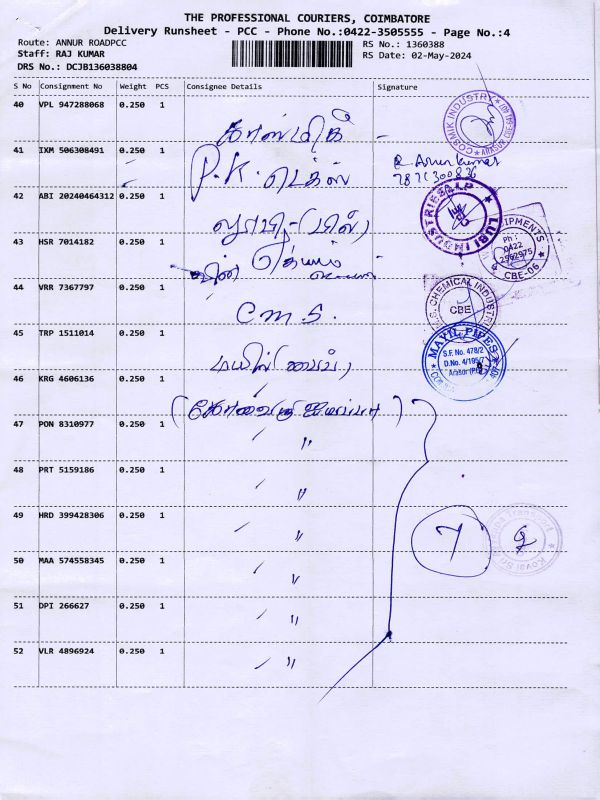 THE PROFESSIONAL COURIERS, COIMBATORE
Delivery Runsheet - PCC - Phone No.:0422-3505555 - Page No.:4
Route: ANNUR ROADPCC
RS No.: 1360388
Staff: RAJ KUMAR
RS Date: 02-May-2024
DRS No.: DCJB136038804
S No Consignment No Weight PCS Consignee Details Signature
40 VPL 947288068 0.250 1
COSMIK INDUSTRY
காஸ்மிக்
41 IXM 506308491 0.250 1
P.K. டெக்ஸ்
7871300836
42 ABI 20240464312 0.250 1
LUBI INDUSTRIES LLP
43 HSR 7014182 0.250 1
Ph :
0422
2962975
CBE-06
44 VRR 7367797 0.250 1
C.M.S.
CHEMICAL INDUSTR
CBE
45 TRP 1511014 0.250 1
மயில் (பைப்)
MAYIL PIPES
S.F. No. 478/2
D.No. 4/195/7
46 KRG 4606136 0.250 1
47 PON 8310977 0.250 1
"
48 PRT 5159186 0.250 1
"
49 HRD 399428306 0.250 1
"
7
50 MAA 574558345 0.250 1
"
51 DPI 266627 0.250 1
"
52 VLR 4896924 0.250 1
"